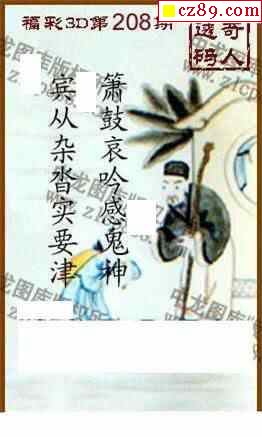 cz89.com
福彩3D第208期
奇人
透码
箫鼓哀吟感鬼神
宾从杂沓实要津
中龙图库版权
中龙图库版权